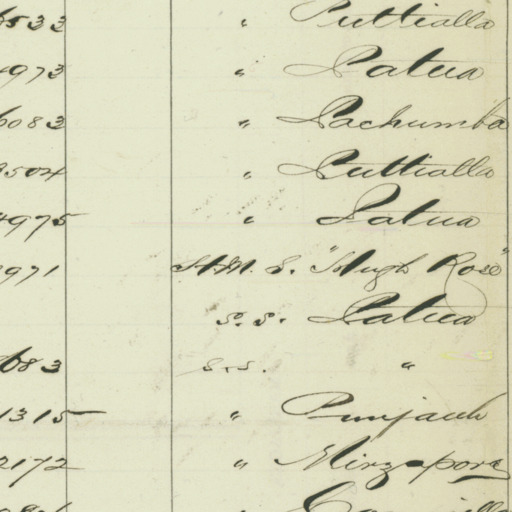 533 " Puttialla
973 " Patna
6083 " Pachumba
3504 " Puttialla
4975 " Patna
2971 H.M.S. "Hugh Rose"
S.S. Patna
683 S.S. "
1315 " Punjaub
2172 " Mirzapore